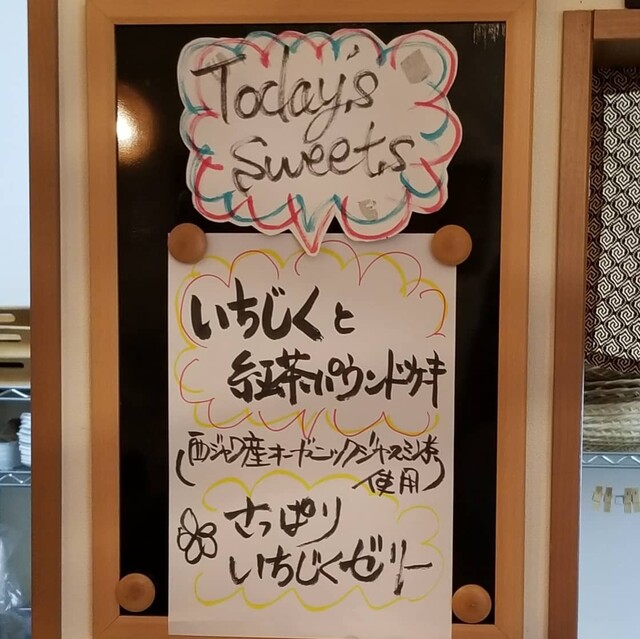 Today's
Sweets
いちじくと
紅茶パウンドケーキ
(西ジャワ産オーガニックジャスミン茶
使用)
さっぱり
いちじくゼリー